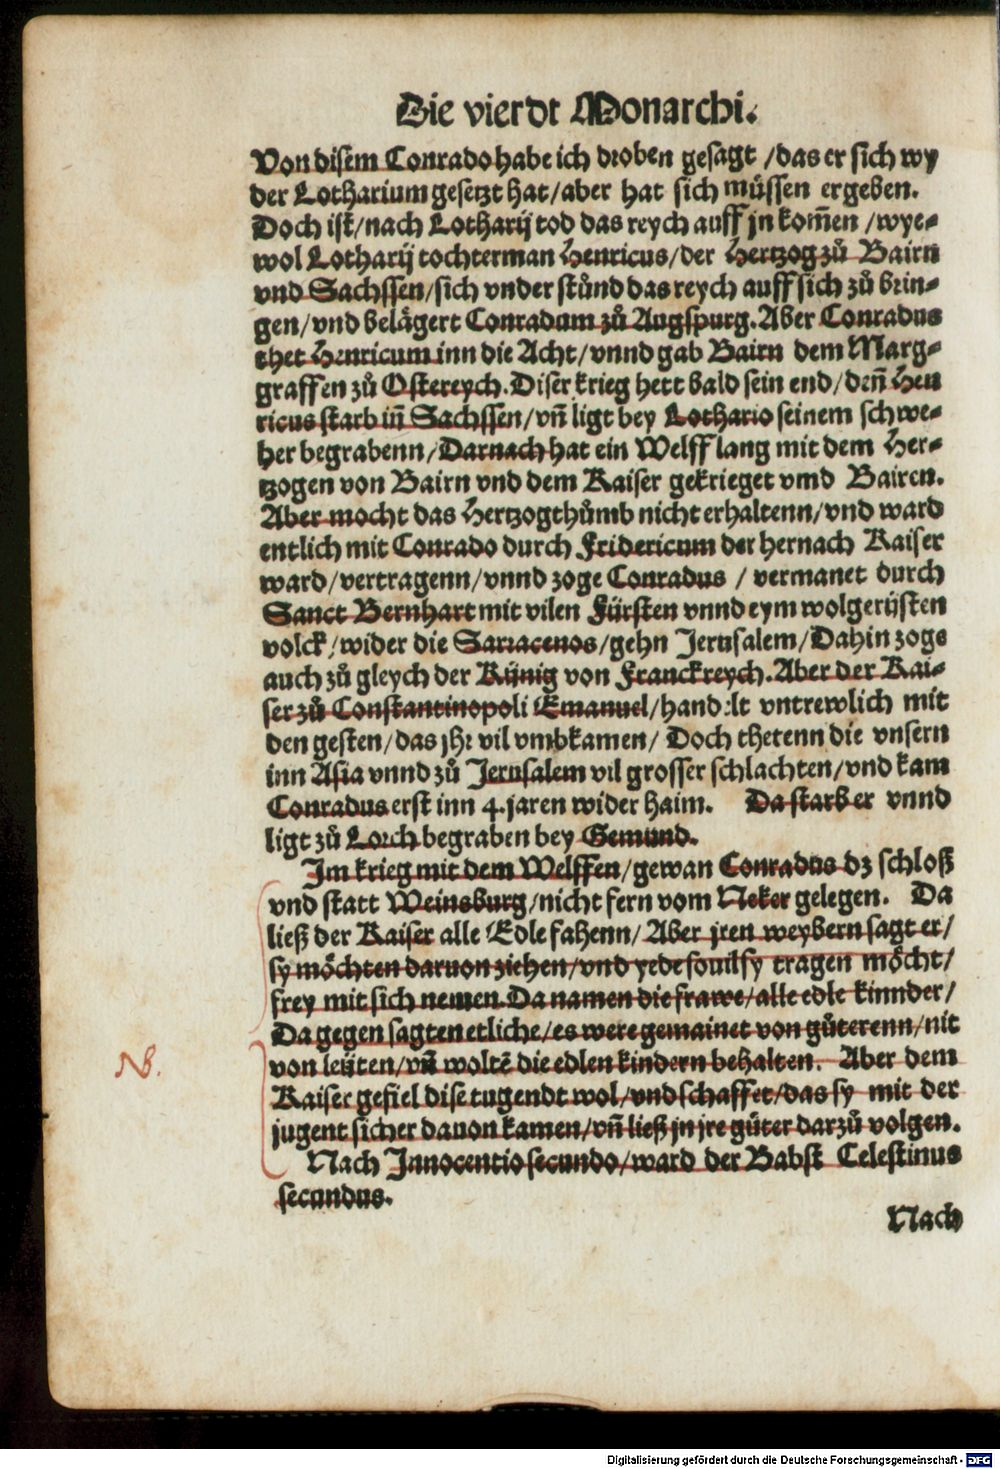 Die vierdt Monarchi.
Von disem Conrado habe ich droben gesagt /das er sich wy
der Lotharium gesetzt hat/aber hat sich müssen ergeben.
Doch ist/nach Lotharij tod das reych auff jn kom̄en /wye-
wol Lotharij tochterman Henricus/der Hertzog zů Bairn
vnd Sachssen/sich vnder stůnd das reych auff sich zů brin-
gen/vnd belägert Conradum zů Augspurg. Aber Conradus
thet Henricum inn die Acht/vnnd gab Bairn dem Marg-
graffen zů Ostereych. Diser krieg hett bald sein end/deñ Hen
ricus starb iñ Sachssen/vñ ligt bey Lothario seinem schwe-
her begrabenn/Darnach hat ein Welff lang mit dem Her-
tzogen von Bairn vnd dem Kaiser gekrieget vmd Bairen.
Aber mocht das Hertzogthůmb nicht erhaltenn/vnd ward
entlich mit Conrado durch Fridericum der hernach Kaiser
ward/vertragenn/vnnd zoge Conradus / vermanet durch
Sanct Bernhart mit vilen Fürsten vnnd eym wolgerüsten
volck/wider die Sarracenos/gehn Jerusalem/Dahin zoge
auch zů gleych der Künig von Franckreych. Aber der Kai-
ser zů Constantinopoli Emanuel/handelt vntrewlich mit
den gesten/das jhr vil vmbkamen/ Doch thetenn die vnsern
inn Asia vnnd zů Jerusalem vil grosser schlachten/vnd kam
Conradus erst inn 4. jaren wider haim. Da starb er vnnd
ligt zů Lorch begraben bey Gemund.
Im krieg mit dem Welffen/gewan Conradus dz schloß
vnd statt Weinsburg/nicht fern vom Neker gelegen. Da
ließ der Kaiser alle Edle fahenn/ Aber jren weybern sagt er/
sy möchten daruon ziehen/vnd yede souil sy tragen möcht/
frey mit sich nemen. Da namen die frawe/alle edle kinnder/
Da gegen sagten etliche/es were gemainet von güterenn/nit
von leüten/vñ woltē die edlen kindern behalten. Aber dem
Kaiser gefiel dise tugendt wol/vnd schaffet/das sy mit der
jugent sicher dauon kamen/vñ ließ jn jre güter darzů volgen.
NB.
Nach Innocentio secundo/ward der Babst Celestinus
secundus.
Nach
Digitalisierung gefördert durch die Deutsche Forschungsgemeinschaft - DFG